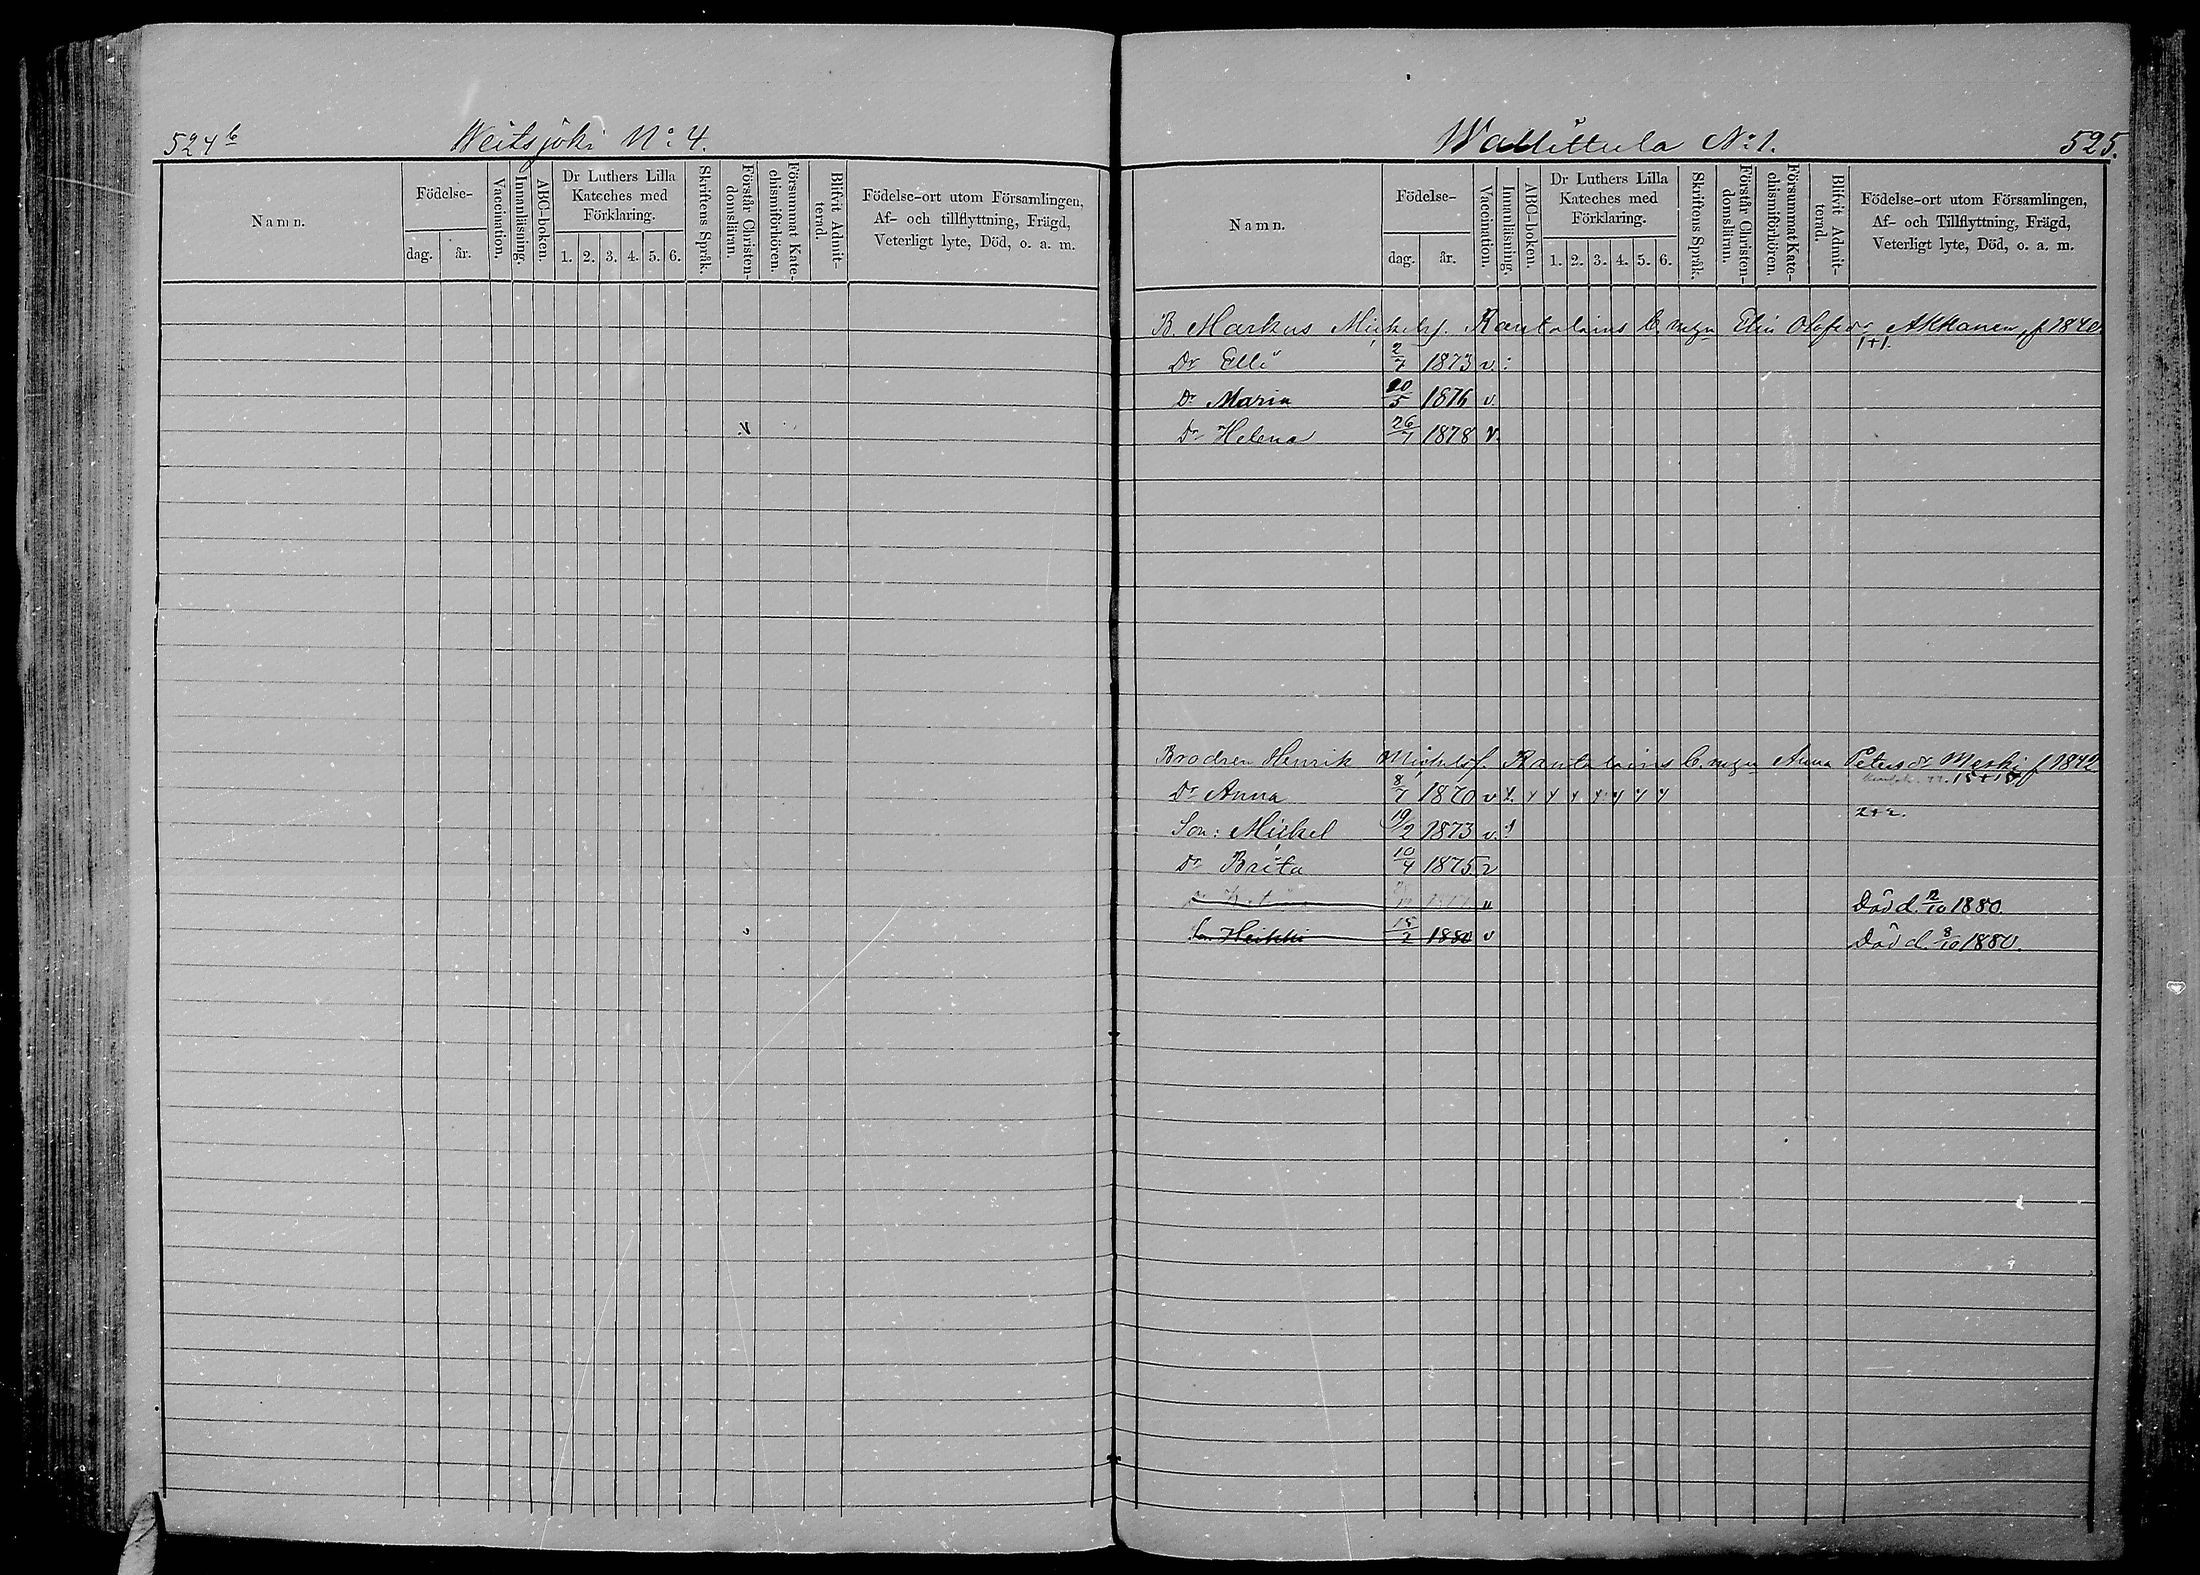 524 b Weitsjoki No 4.
Namn.
Födelse-
dag. år.
Vaccination.
Innanläsning.
ABC-boken.
Dr Luthers Lilla Kateches med Förklaring.
1. 2. 3. 4. 5. 6.
Skriftens Språk.
Förstår Christendomsläran.
Försummat Katechismiförhören.
Blifvit Admitterad.
Födelse-ort utom Församlingen,
Af- och tillflyttning, Frägd,
Veterligt lyte, Död, o. a. m.
v
Wallittula No 1. 525.
Namn.
Födelse-
dag. år.
Vaccination.
Innanläsning.
ABC-boken.
Dr Luthers Lilla Kateches med Förklaring.
1. 2. 3. 4. 5. 6.
Skriftens Språk.
Förstår Christendomsläran.
Försummat Katechismiförhören.
Blifvit Admitterad.
Födelse-ort utom Församlingen,
Af- och Tillflyttning, Frägd,
Veterligt lyte, Död, o. a. m.
B. Markus Mickelsf. Rantalains b. m. Elin Olofsdr Akkanen, f 1840
1+1.
Dr Elli 2/7 1873 v :
Dr Maria 20/5 1876 v
Dr Helena 26/7 1878 v.
Brodren Henrik Mickelsf. Rantalains b. m. Anna Petersdr Meski f 1842
15+15
Dr Anna 8/7 1870 v
2+2.
Son: Mickel 19/2 1873 v.
Dr Brita 10/4 1875 v
Död d. 12/10 1880.
Son Heikki 18/2 1880 v Död d. 8/10 1880.